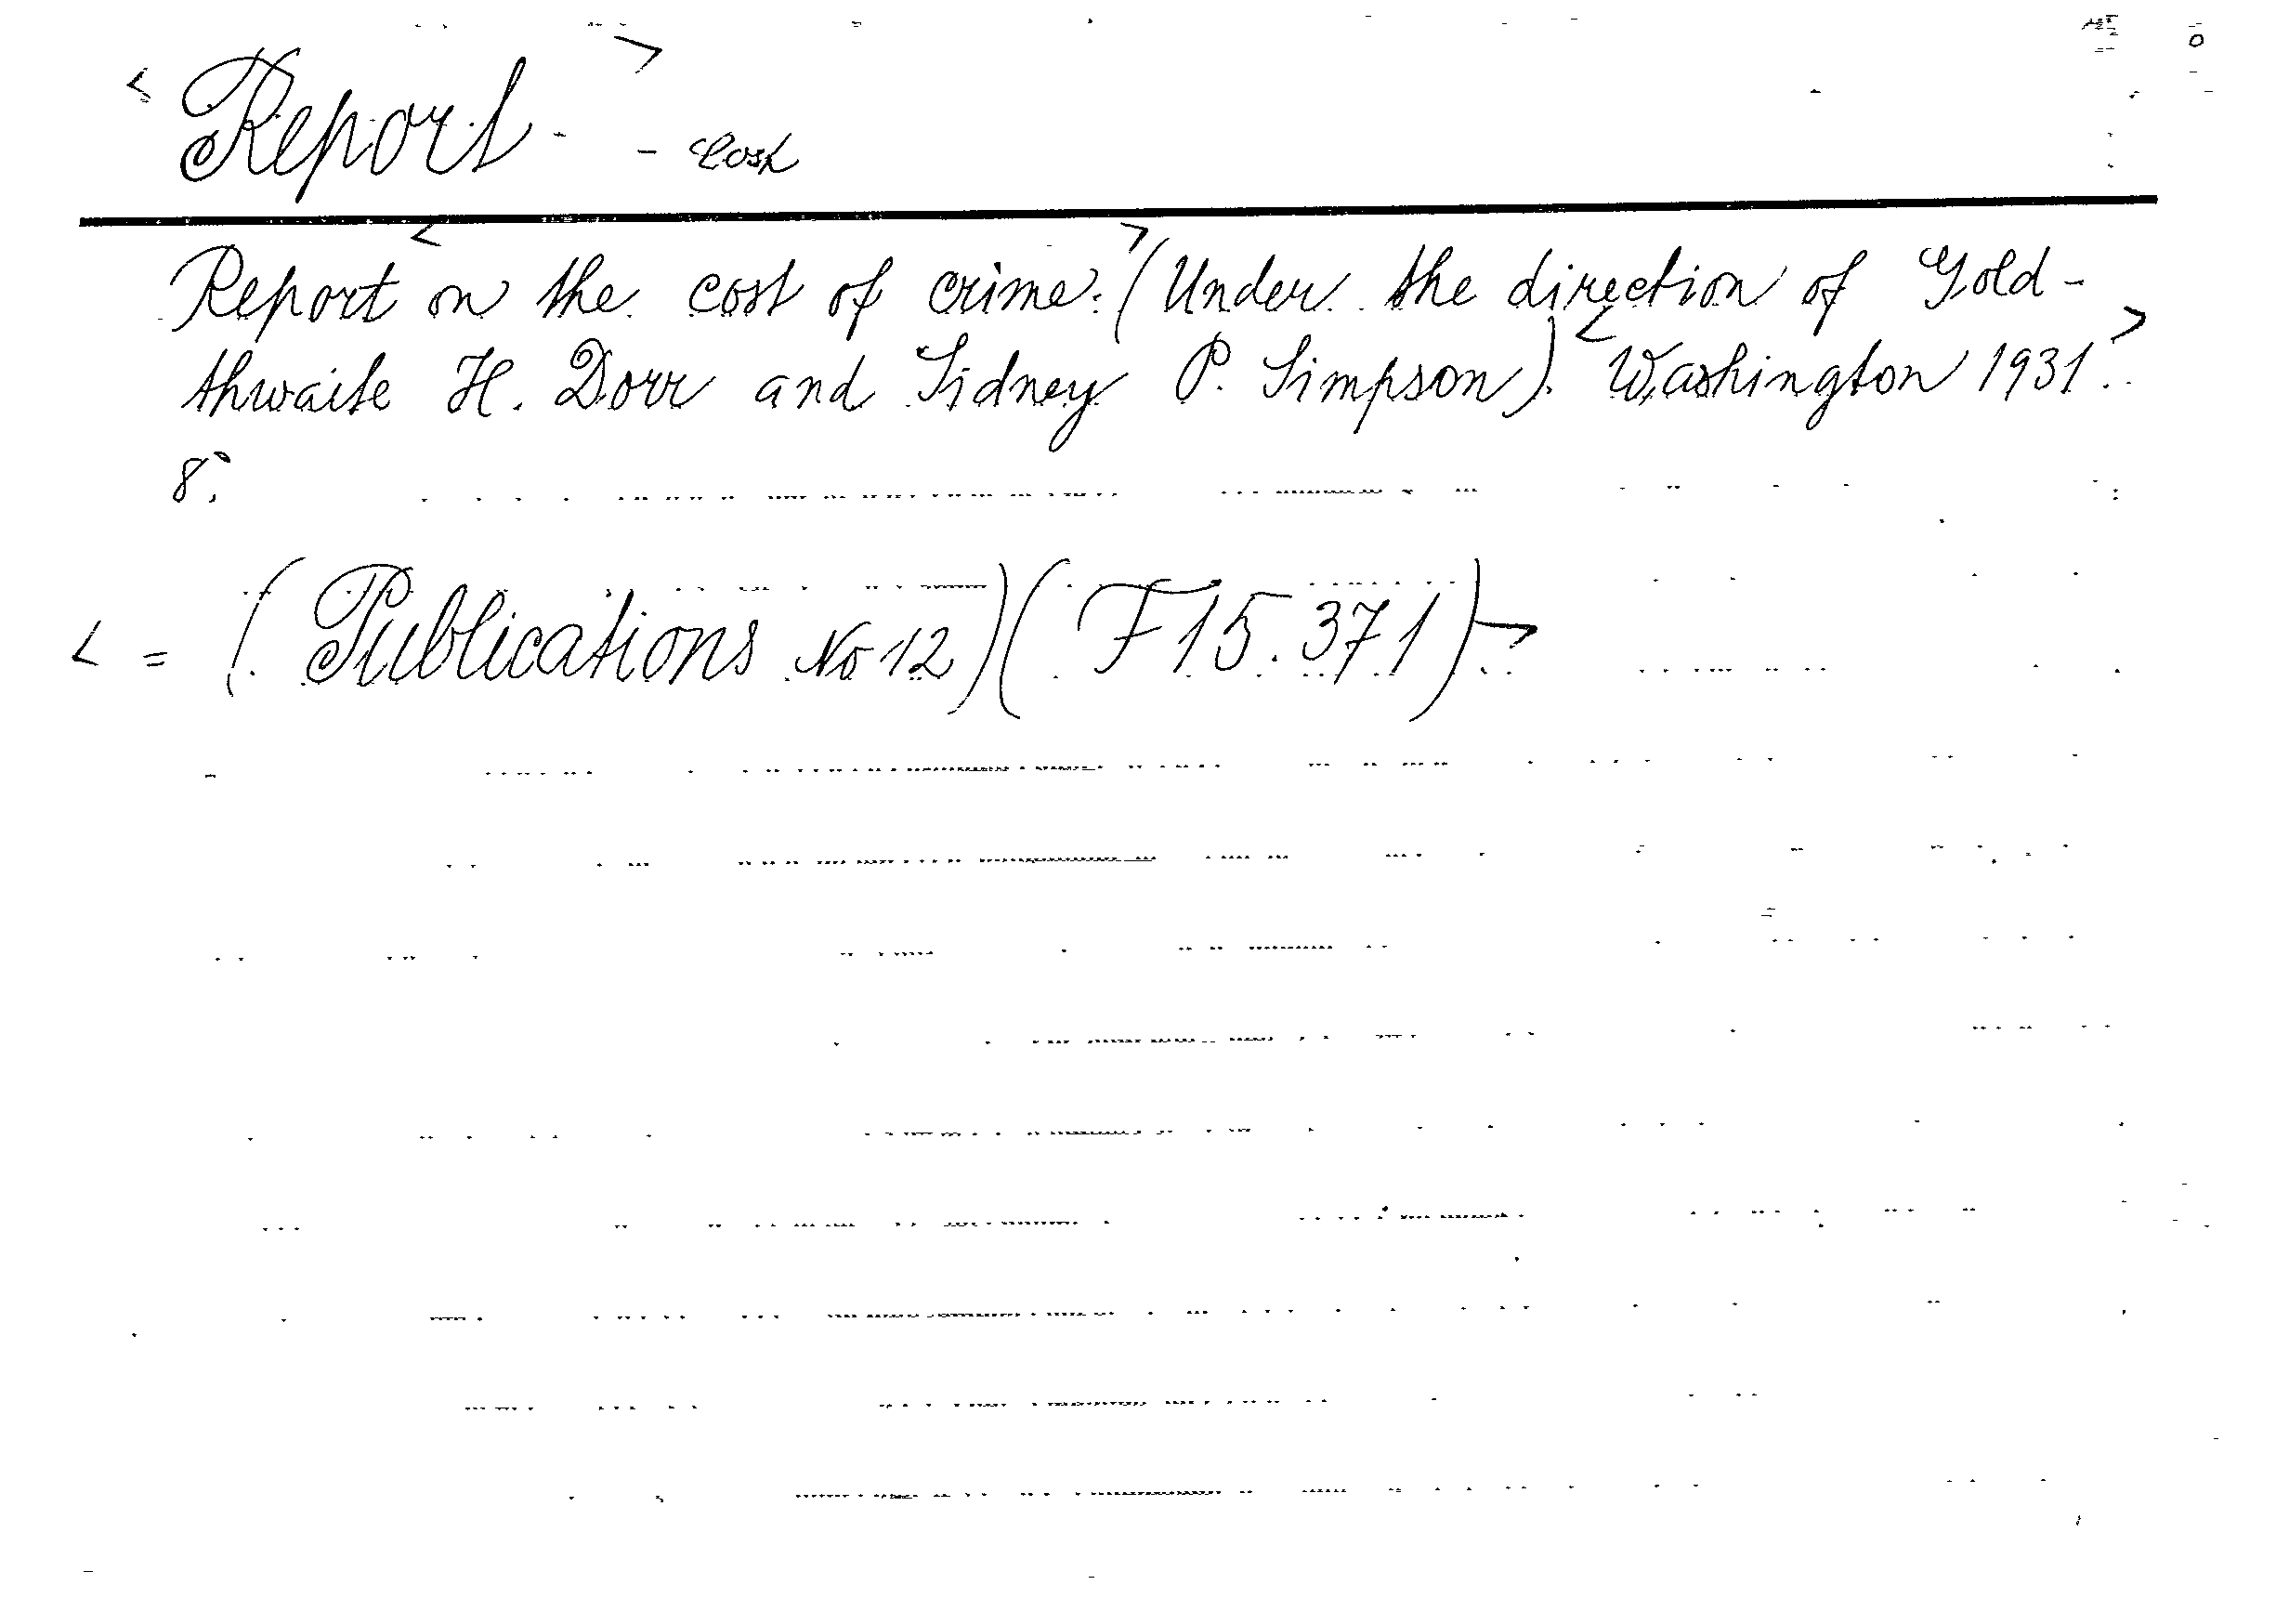 < Report - > - Cost
Report < on the cost of crime. > (Under the direction of Gold-
thwaite H. Dorr and Sidney P. Simpson). < Washington 1931. >
8°.
< = (Publications No 12) (F15.371) >